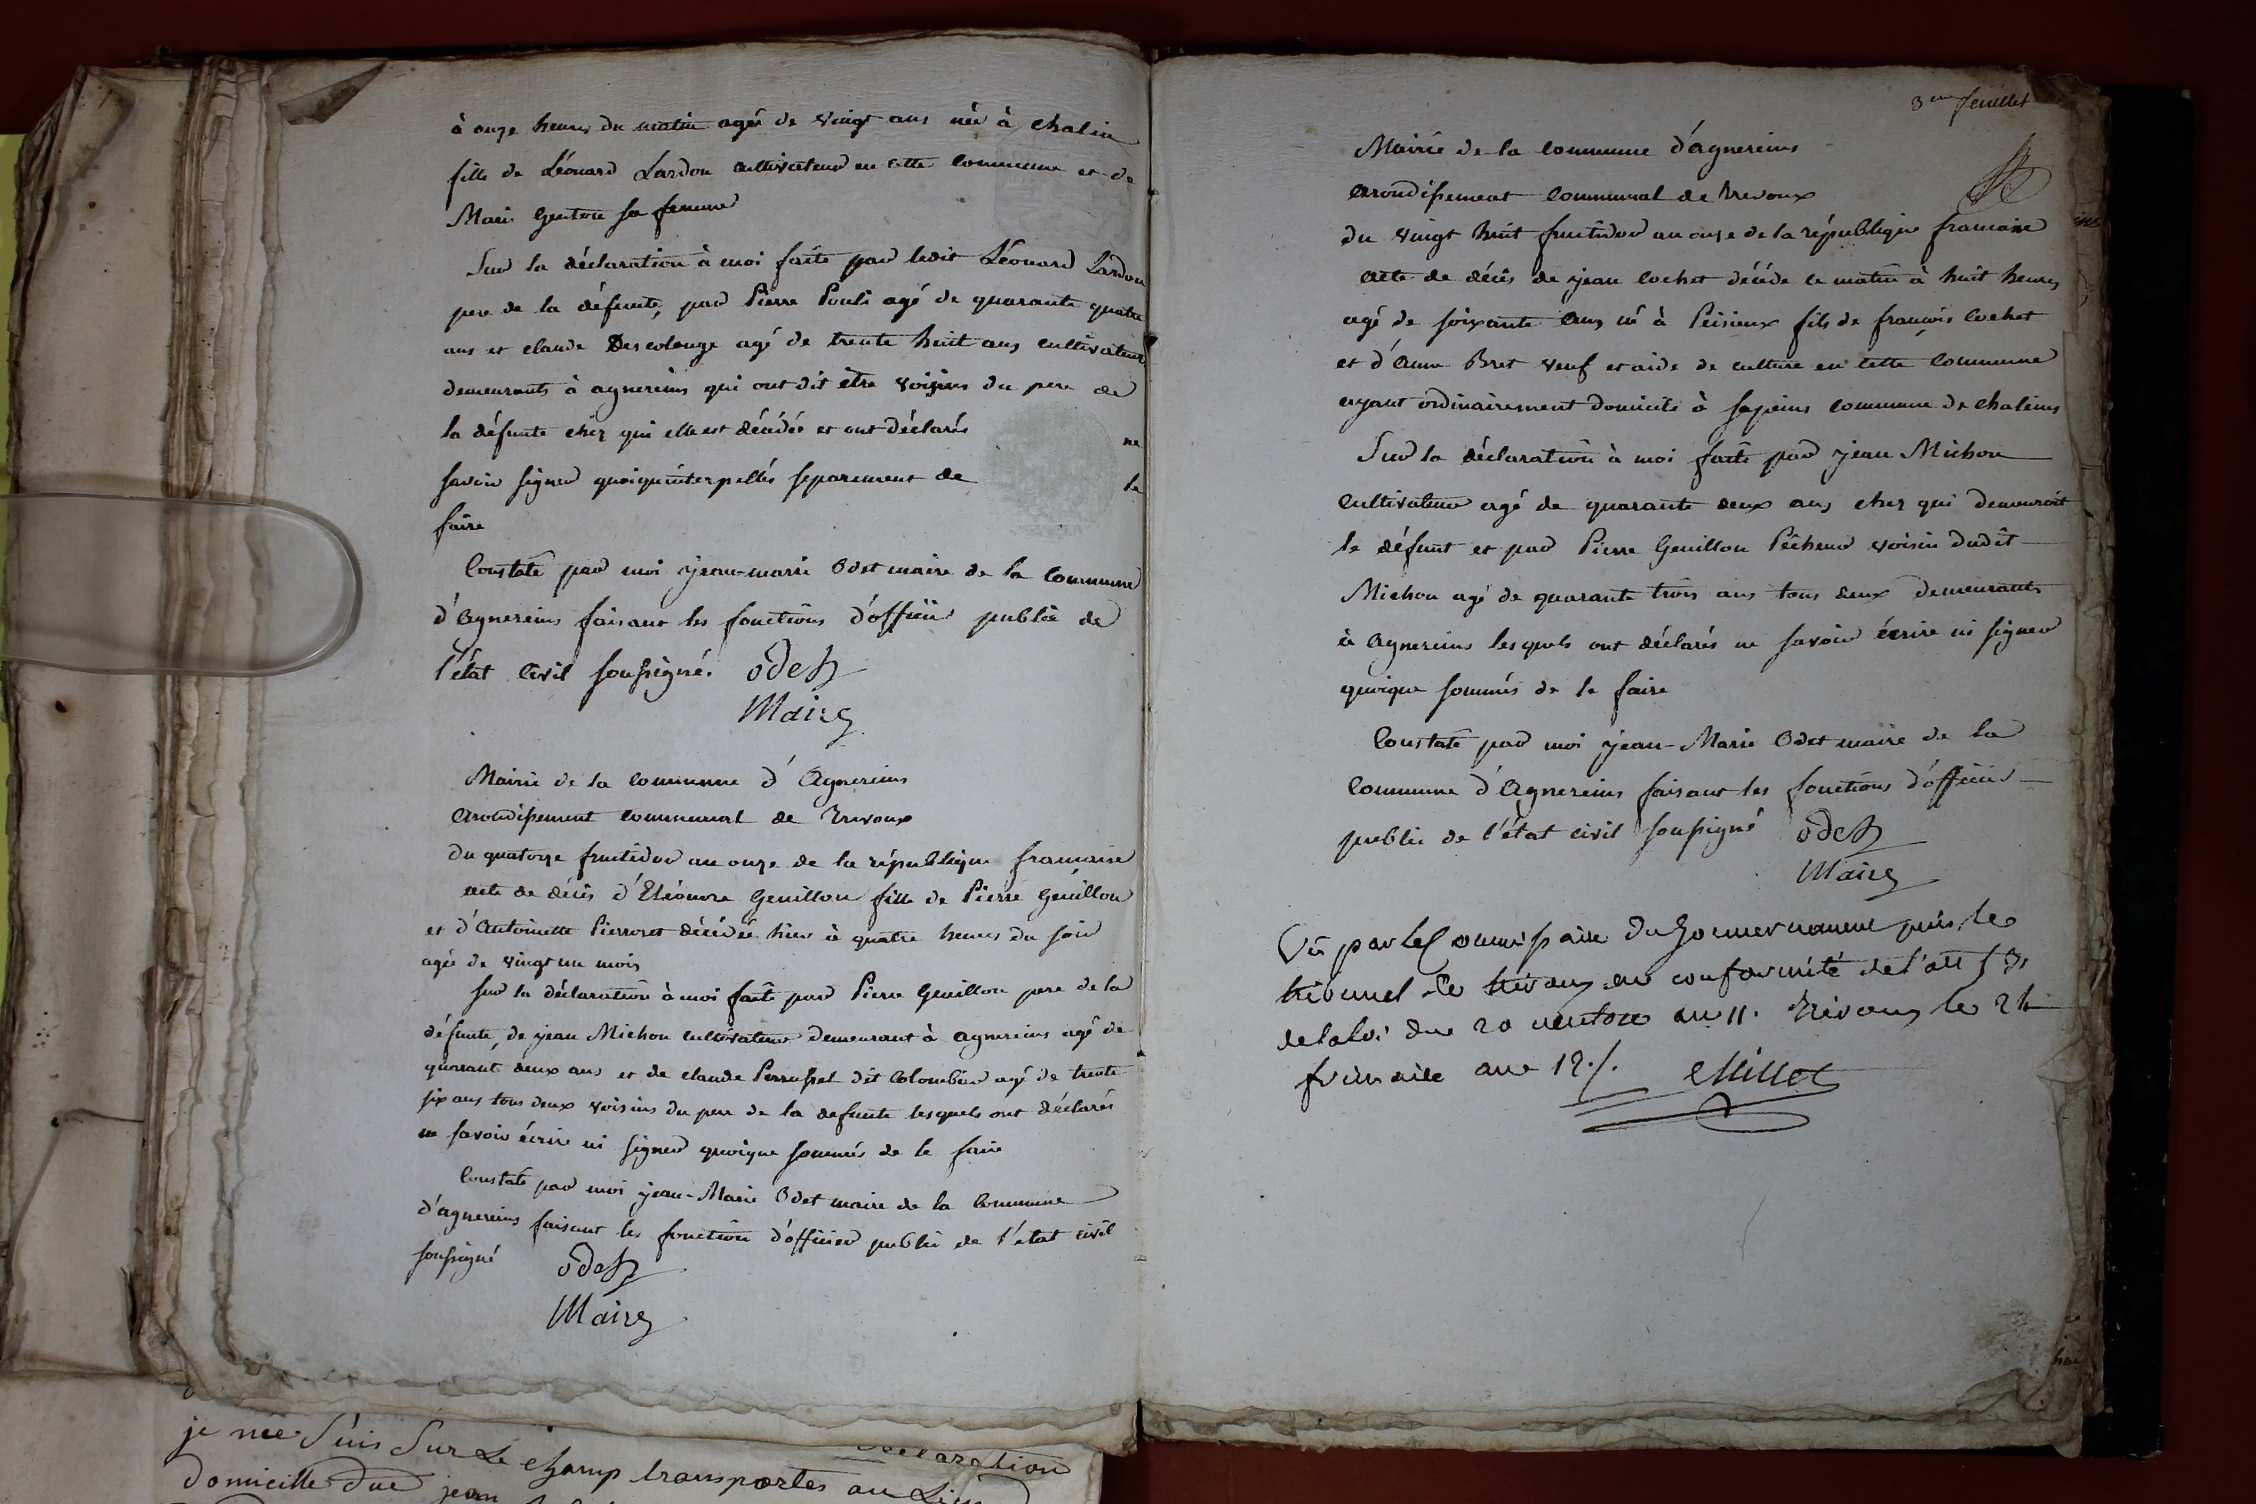 à onze heures du matin agée de vingt ans née à chalein
fille de Léonard Lardon cultivateur en cette commune et de
Marie Genton sa femme
Sur la déclaration à moi faite par ledit Léonard Lardon
pere de la défunte, par Pierre Pouli agé de quarante quatre
ans et claude Descolonge agé de trente huit ans cultivateurs
demeurants à agnereins qui ont dit être voisins du pere de
la défunte chez qui elle est décédée et ont déclarés ne
savoir signer quoiqu'interpellés separement de le
faire
Constaté par moi jean-marie Odet maire de la commune
d'agnereins faisant les fonctions d'officier public de
l'état civil soussigné. odet
Maire
Mairie de la commune d'Agnereins
arondissement communal de Trevoux
Du quatorze fructidor an onze de la république francaise
acte de décès d'Eléonore Genillon fille de Pierre Genillon
et d'Antoinette Pierroset décédée hier à quatre heures du soir
agée de vingt un mois
Sur la déclaration à moi faite par Pierre Genillon pere de la
défunte, de jean Michon cultivateur demeurant à agnereins agé de
quarante deux ans et de claude Perrusset dit Colombier agé de trente
six ans tous deux voisins du pere de la defunte lesquels ont déclarés
ne savoir écrire ni signer quoique sommés de le faire
Constaté par moi jean-Marie Odet maire de la commune
d'agnereins faisant les fonction d'officier public de l'état civil
soussigné odet
Maire
3eme feuillet
Mairie de la commune d'agnereins
arrondissement communal de Trevoux
du vingt huit fructidor an onze de la république francaise
acte de décès de jean cochet décédé ce matin à huit heures
agé de soixante ans né à Peisieux fils de françois cochet
et d'anne Bret veuf et aide de culture en cette commune
ayant ordinairement domicile à sepeins commune de chaleins
Sur la déclaration à moi faite par jean Michon
cultivateur agé de quarante deux ans chez qui demeuroit
le défunt et par Pierre Genillon Pêcheur voisin dudit
Michon agé de quarante trois ans tous deux demeurants
à agnereins lesquels ont déclarés ne savoir écrire ni signer
quoique sommés de le faire
Constaté par moi jean-Marie Odet maire de la
commune d'agnereins faisant les fonctions d'officier
public de l'état civil soussigné odet
Maire
Vû par le Commissaire du Gouvernement près le
tribunal de trévoux en conformité de l'art 53
de la loi du 20 ventose an 11. Trévoux le 24
frimaire an 12./. Millet
je me suis sur le champ transportes au Lieu
déclaration
domicille due jean